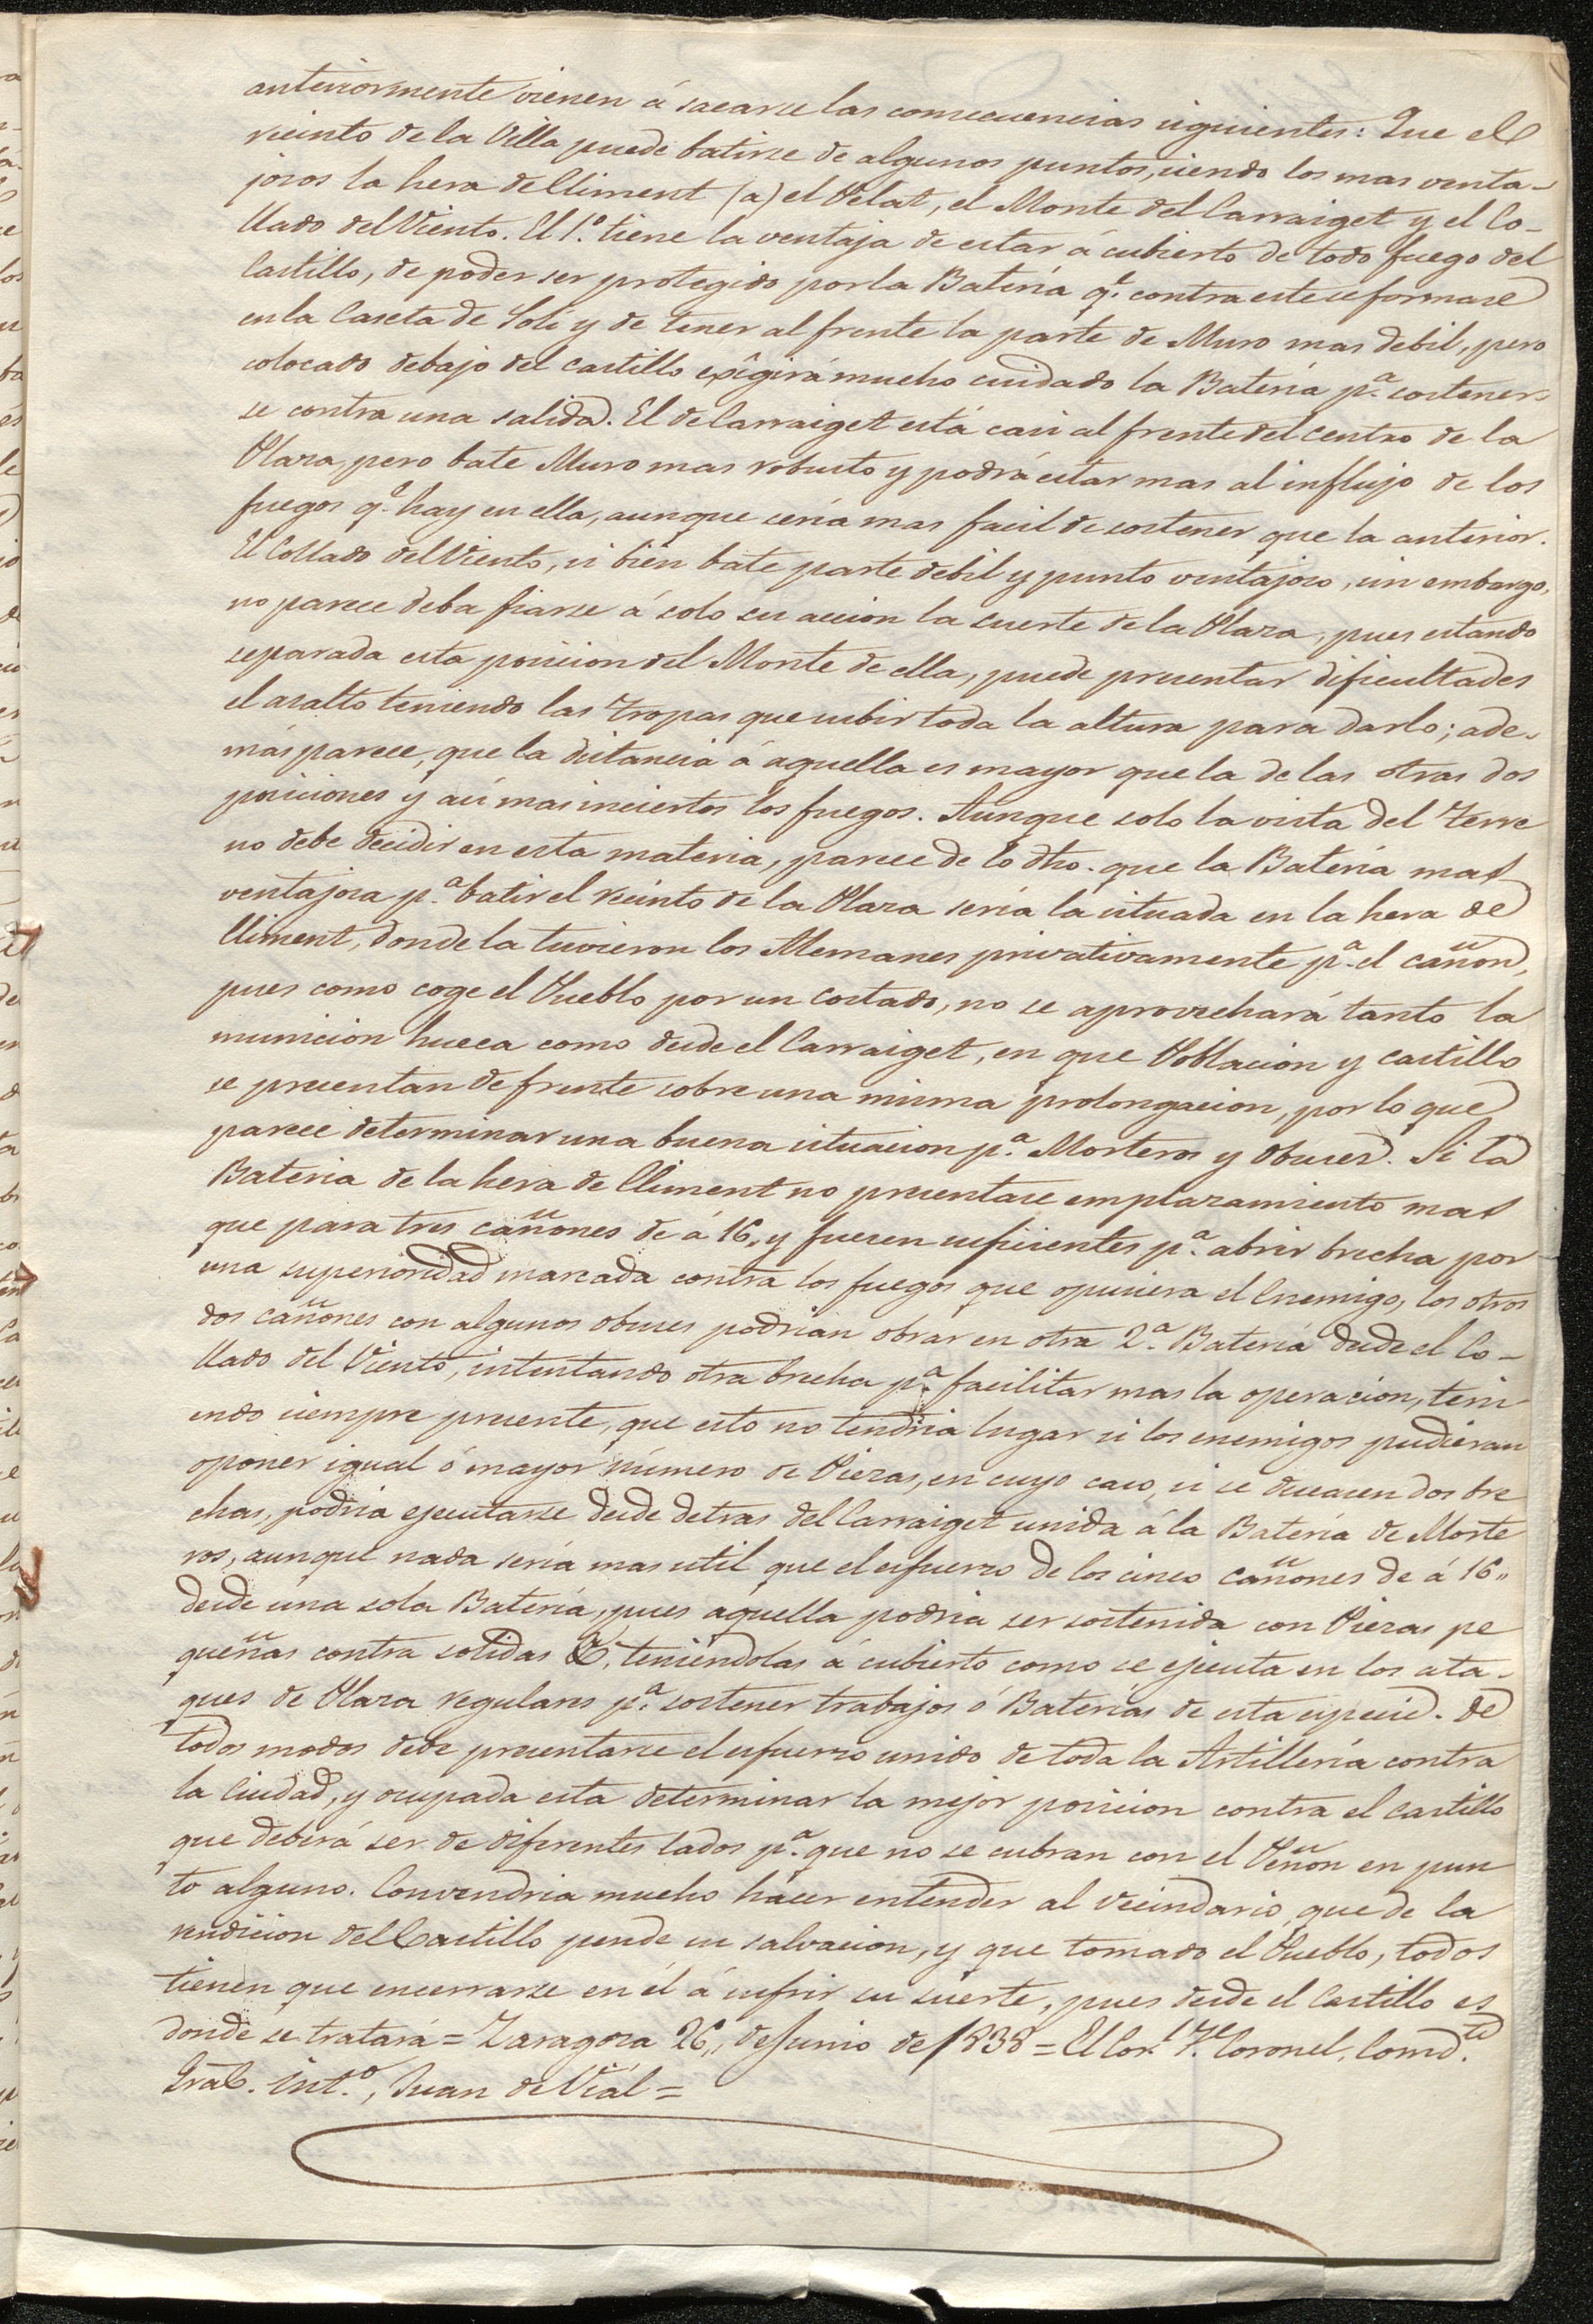 anteriormente vienen á sacarse las consecuencias siguientes: Que el
recinto de la Villa puede batirse de algunos puntos, siendo los mas venta-
josos la hera de Climent (a) el Pelat, el Monte del Carraiget y el Co-
llado del Viento. El 1.º tiene la ventaja de estar á cubierto de todo fuego del
Castillo, de poder ser protegido por la Batería q.e contra este se formase
en la Caseta de Soli y de tener al frente la parte de Muro mas debil, pero
colocado debajo del castillo exîgirá mucho cuidado la Batería p.a sostener-
se contra una salida. El de Carraiget está casi al frente del centro de la
Plaza, pero bate Muro mas robusto y podrá estar mas al influjo de los
fuegos q.e hay en ella, aunque sería mas facil de sostener que la anterior.
El Collado del Viento, si bien bate parte debil y punto ventajoso, sin embargo,
no parece deba fiarse á solo su accion la suerte de la Plaza, pues estando
separada esta posicion del Monte de ella, puede presentar dificultades
el asalto teniendo las tropas que subir toda la altura para darlo; ade-
más parece, que la distancia á aquella es mayor que la de las otras dos
posiciones y así mas inciertos los fuegos. Aunque solo la vista del terre
no debe decidir en esta materia, parece de lo dho. que la Batería mas
ventajosa p.a batir el recinto de la Plaza sería la situada en la hera de
Climent, donde la tuvieron los Alemanes privativamente p.a el cañon,
pues como coge el Pueblo por un costado, no se aprovechará tanto la
municion hueca como desde el Carraiget, en que Poblacion y castillo
se presentan de frente sobre una misma prolongacion, por lo que
parece determinar una buena situacion p.a Morteros y Obuses. Si la
Bateria de la hera de Climent no presentase emplazamiento mas
que para tres cañones de á 16,, y fuesen suficientes p.a abrir brecha por
una superioridad marcada contra los fuegos que opusiera el Enemigo, los otros
dos cañones con algunos obuses podrian obrar en otra 2.a Batería desde el Co-
llado del Viento, intentando otra brecha p.a facilitar mas la operacion, teni
endo siempre presente, que esto no tendria lugar si los enemigos pudieran
oponer igual ó mayor número de Piezas, en cuyo caso, si se deseasen dos bre
chas, podria ejecutarse desde detras del Carraiget unida á la Batería de Morte
ros, aunque nada sería mas util que el esfuerzo de los cinco cañones de á 16,,
desde una sola Batería, pues aquella podria ser sostenida con Piezas pe
queñas contra salidas &.a teniéndolas á cubierto como se ejecuta en los ata-
ques de Plaza regulares p.a sostener trabajos ó Baterías de esta especie. De
todos modos debe presentarse el esfuerzo unido de toda la Artillería contra
la Ciudad, y ocupada esta determinar la mejor posicion contra el castillo
que deberá ser de diferentes lados p.a que no se cubran con el Peñon en pun
to alguno. Convendria mucho hacer entender al vecindario, que de la
rendicion del Castillo pende su salvacion, y que tomado el Pueblo, todos
tienen que encerrarse en él á sufrir su suerte, pues desde el Castillo es
donde se tratará = Zaragoza 26,, de Junio de 1838 = El Cor.l T.e Coronel, Comd.te
Gral. Int.º, Juan de Vial =